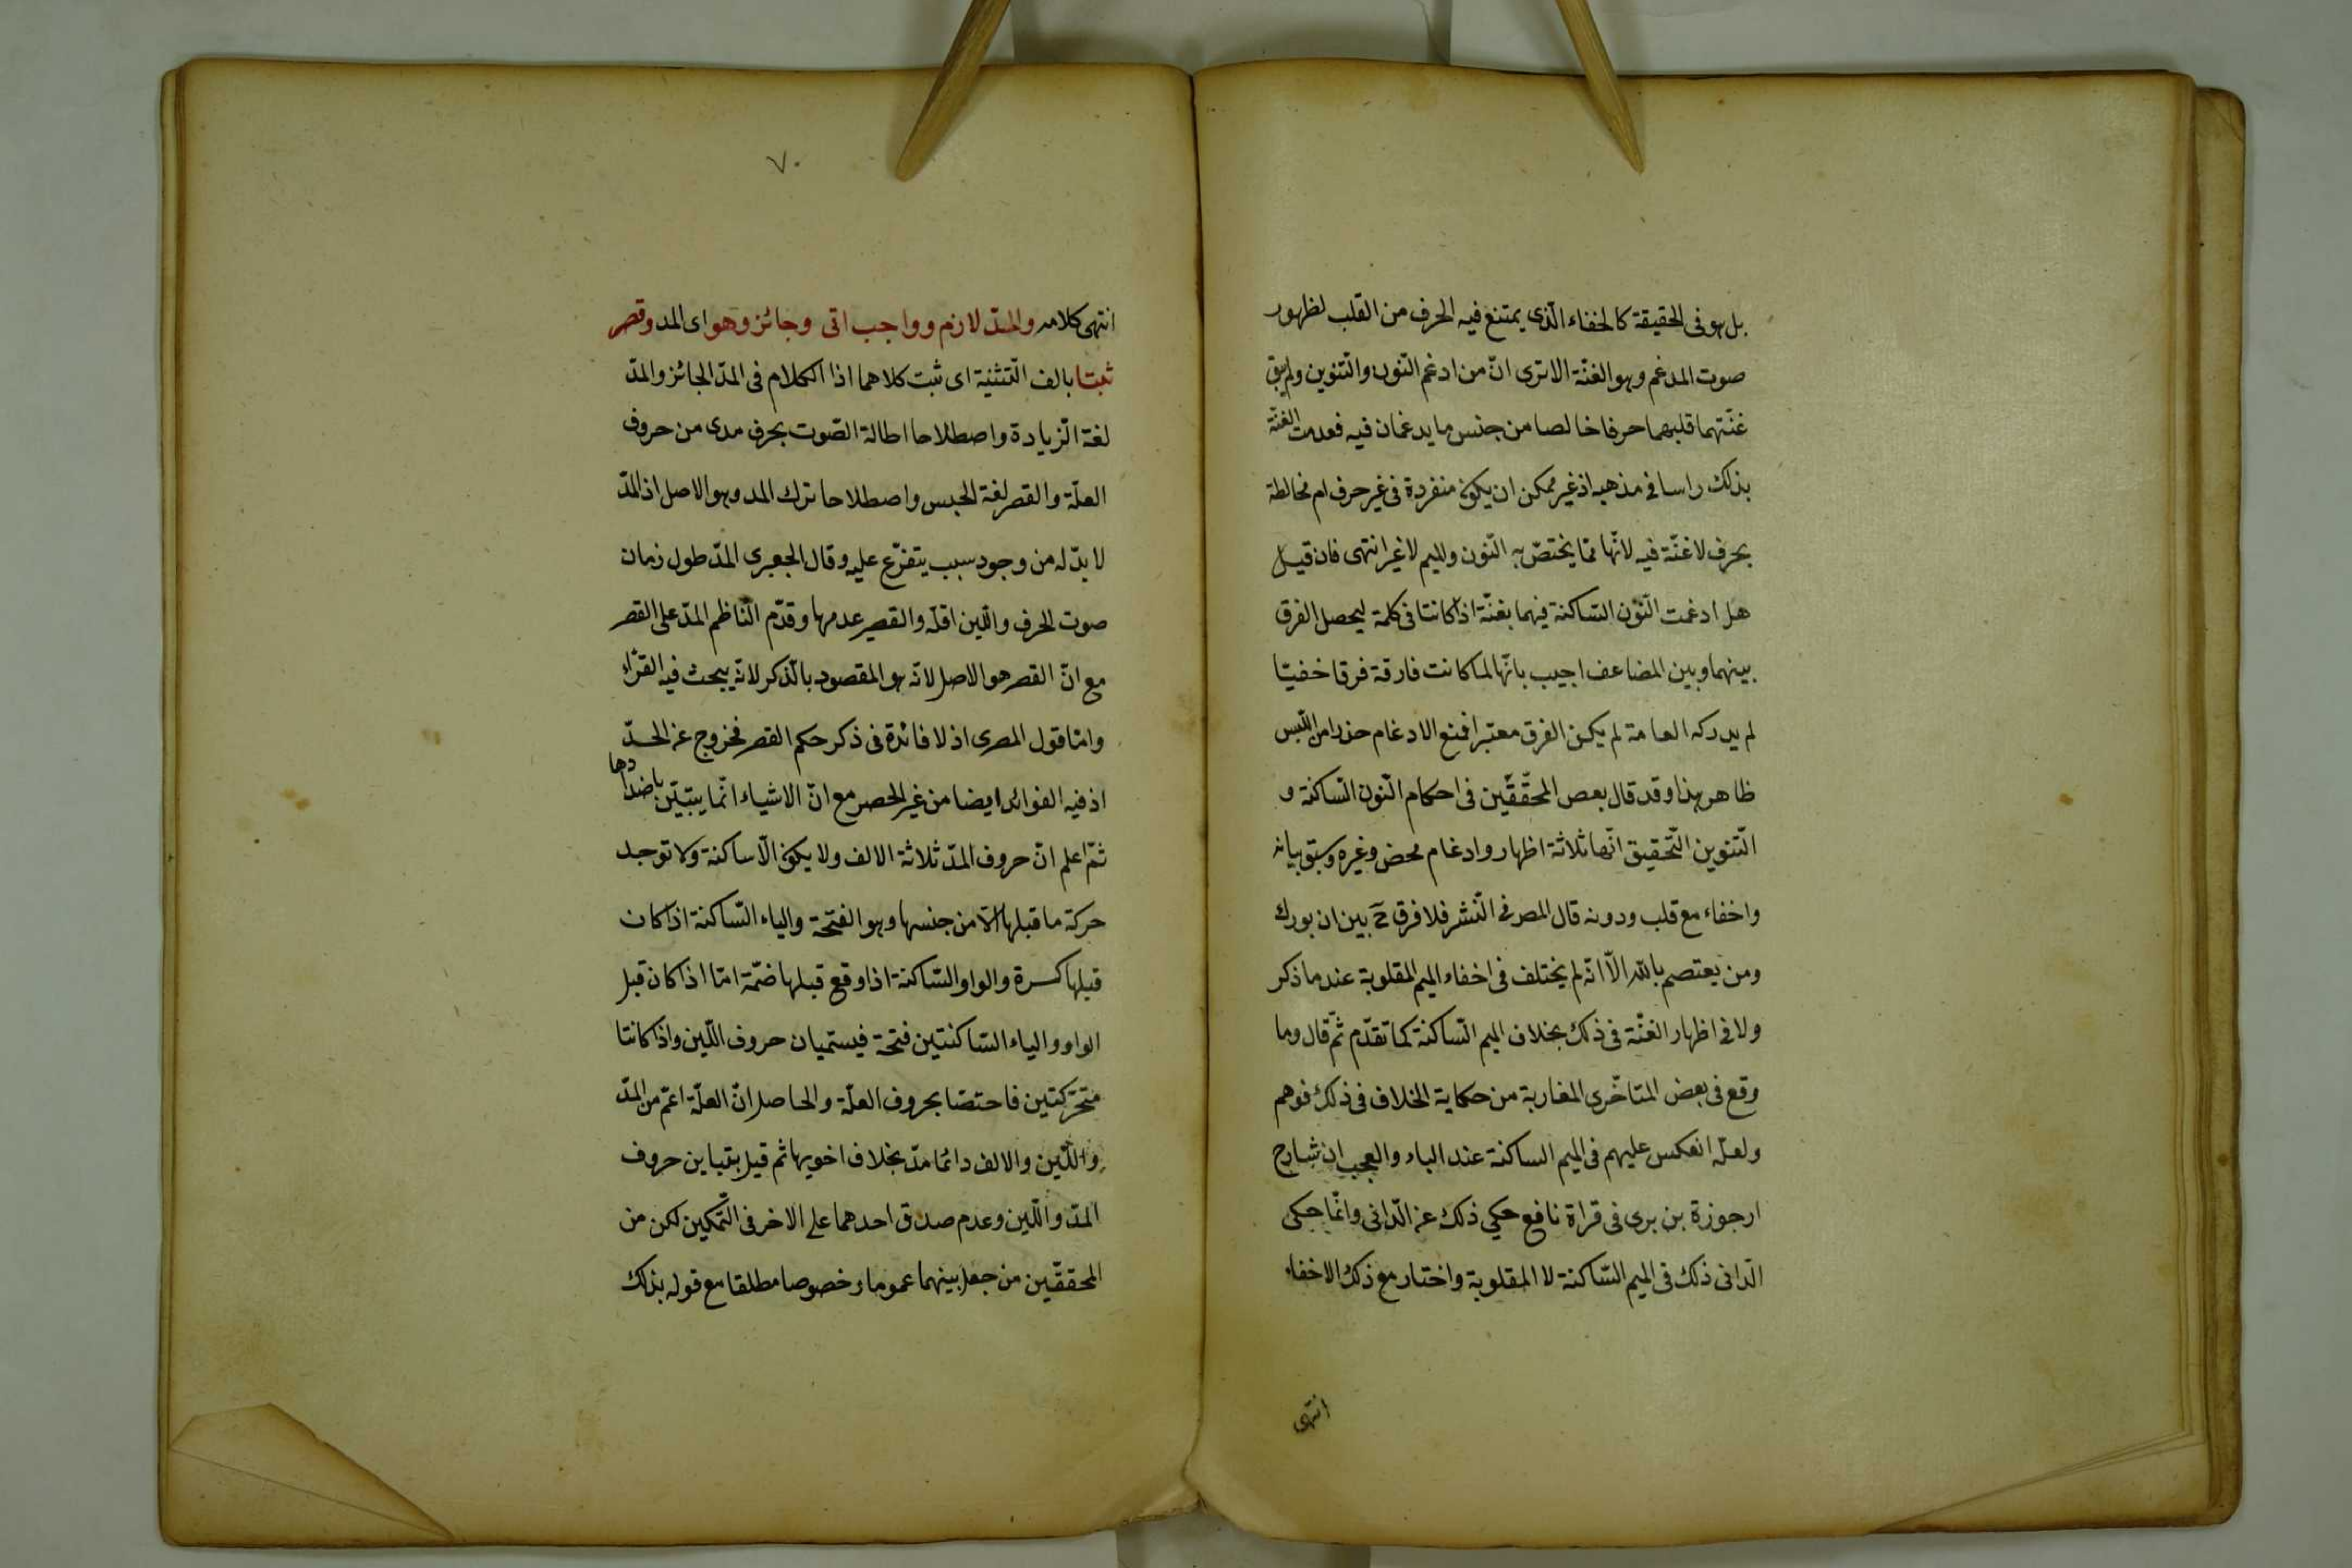 بل هو فى الحقيقة كالخفاء الّذى يمتنع فيه الحرف من القلب لظهور
صوت المدغم وهو الغنّة الا ترى انّ من ادغم النّون والتّنوين ولم يبق
غنّتهما قلبهما حرفا خالصا من جنس ما يدغمان فيه فعدمت الغنّة
بذلك راسا فى مذهبه اذ غير ممكن ان يكون منفردة فى غير حرف ام مخالطة
بحرف لا غنّة فيه لانّها ممّا يختصّ به النّون والميم لا غير انتهى فان قيل
هل ادغمت النّون السّاكنة فيهما بغنّة اذا كانتا فى كلمة ليحصل الفرق
بينهما وبين المضاعف اجيب بانّها لما كانت فارقة فرقا خفيّا
لم يدركه العامة لم يكن الفرق معتبرا فمنع الادغام حذرا من اللّبس
ظاهر هذا وقد قال بعض المحقّقين فى احكام النّون السّاكنة و
التّنوين التّحقيق انّها ثلاثة اظهار وادغام محض وغيره وسبق بيانه
واخفاء مع قلب ودونه قال المصر فى النّشر فلا فرق ح بين ان بورك
ومن يعتصم بالله الّا انّه لم يختلف فى اخفاء الميم المقلوبة عند ما ذكر
ولا فى اظهار الغنّة فى ذلك بخلاف الميم السّاكنة كما تقدّم ثمّ قال وما
وقع فى بعض المتاخّرى المغاربة من حكاية الخلاف فى ذلك فوهم
ولعلّه انعكس عليهم فى الميم الساكنة عند الباء والعجب ان شارح
ارجوزة بن برى فى قراة نافع حكي ذلك عن الدّانى وانّما حكى
الدّانى ذلك فى الميم السّاكنة لا المقلوبة واختار مع ذلك الاخفاء
انتهى
٧٠
انتهى كلامه والمدّ لازم وواجب اتى وجائز وهو اى المد وقصر
ثبتا بالف التّثنية اى ثبت كلاهما اذا الكلام فى المدّ الجائز والمدّ
لغة الزّيادة واصطلاحا اطالة الصّوت بحرف مدى من حروف
العلّة والقصر لغة الحبس واصطلاحا ترك المد وهو الاصل اذ المدّ
لا بدّ له من وجود سبب يتفرّع عليه وقال الجعبرى المدّ طول زمان
صوت الحرف واللّين اقلّه والقصر عدمها وقدّم النّاظم المدّ على القصر
مع انّ القصر هو الاصل لانّه هو المقصود بالذّكر لانّه يبحث فيه القرّاء
وامّا قول المصرى اذ لا فائدة فى ذكر حكم القصر فخروج عن الحدّ
اذ فيه الفوائد ايضا من غير الحصر مع انّ الاشياء انّما يتبيّن باضدادها
ثمّ اعلم انّ حروف المدّ ثلاثة الالف ولا يكون الّا ساكنة ولا توجد
حركة ما قبلها الّا من جنسها وهو الفتحة والياء السّاكنة اذا كان
قبلها كسرة والواو السّاكنة اذا وقع قبلها ضمّة امّا اذا كان قبل
الواو والياء السّاكنتين فتحة فيسمّيان حروف اللّين واذا كانتا
متحرّكتين فاختصّا بحروف العلّة والحاصل انّ العلّة اعمّ من المدّ
واللّين والالف دائما مدّ بخلاف اخويها ثم قيل بتباين حروف
المدّ واللّين وعدم صدق احدهما على الاخر فى التّمكين لكن من
المحققّين من جعل بينهما عموما وخصوصا مطلقا مع قوله بذلك